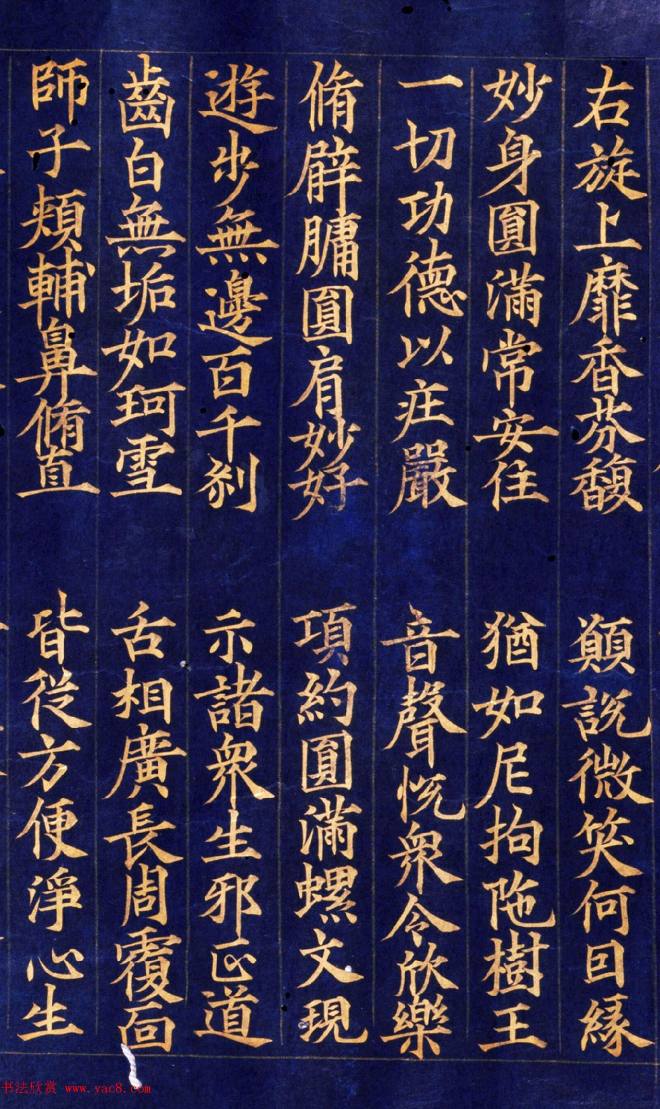 右旋上靡香芬馥 願説微笑何因緣
妙身圓滿常安住 猶如尼拘陁樹王
一切功德以疰嚴 音聲恱衆令欣樂
脩臂𦟛圓肩妙好 項約圓滿螺文現
遊步無邊百千刹 示諸衆生邪正道
齒白無垢如珂雪 舌相廣長周覆面
師子頰輔鼻脩直 皆從方便淨心生
书法欣赏 www.yac8.com